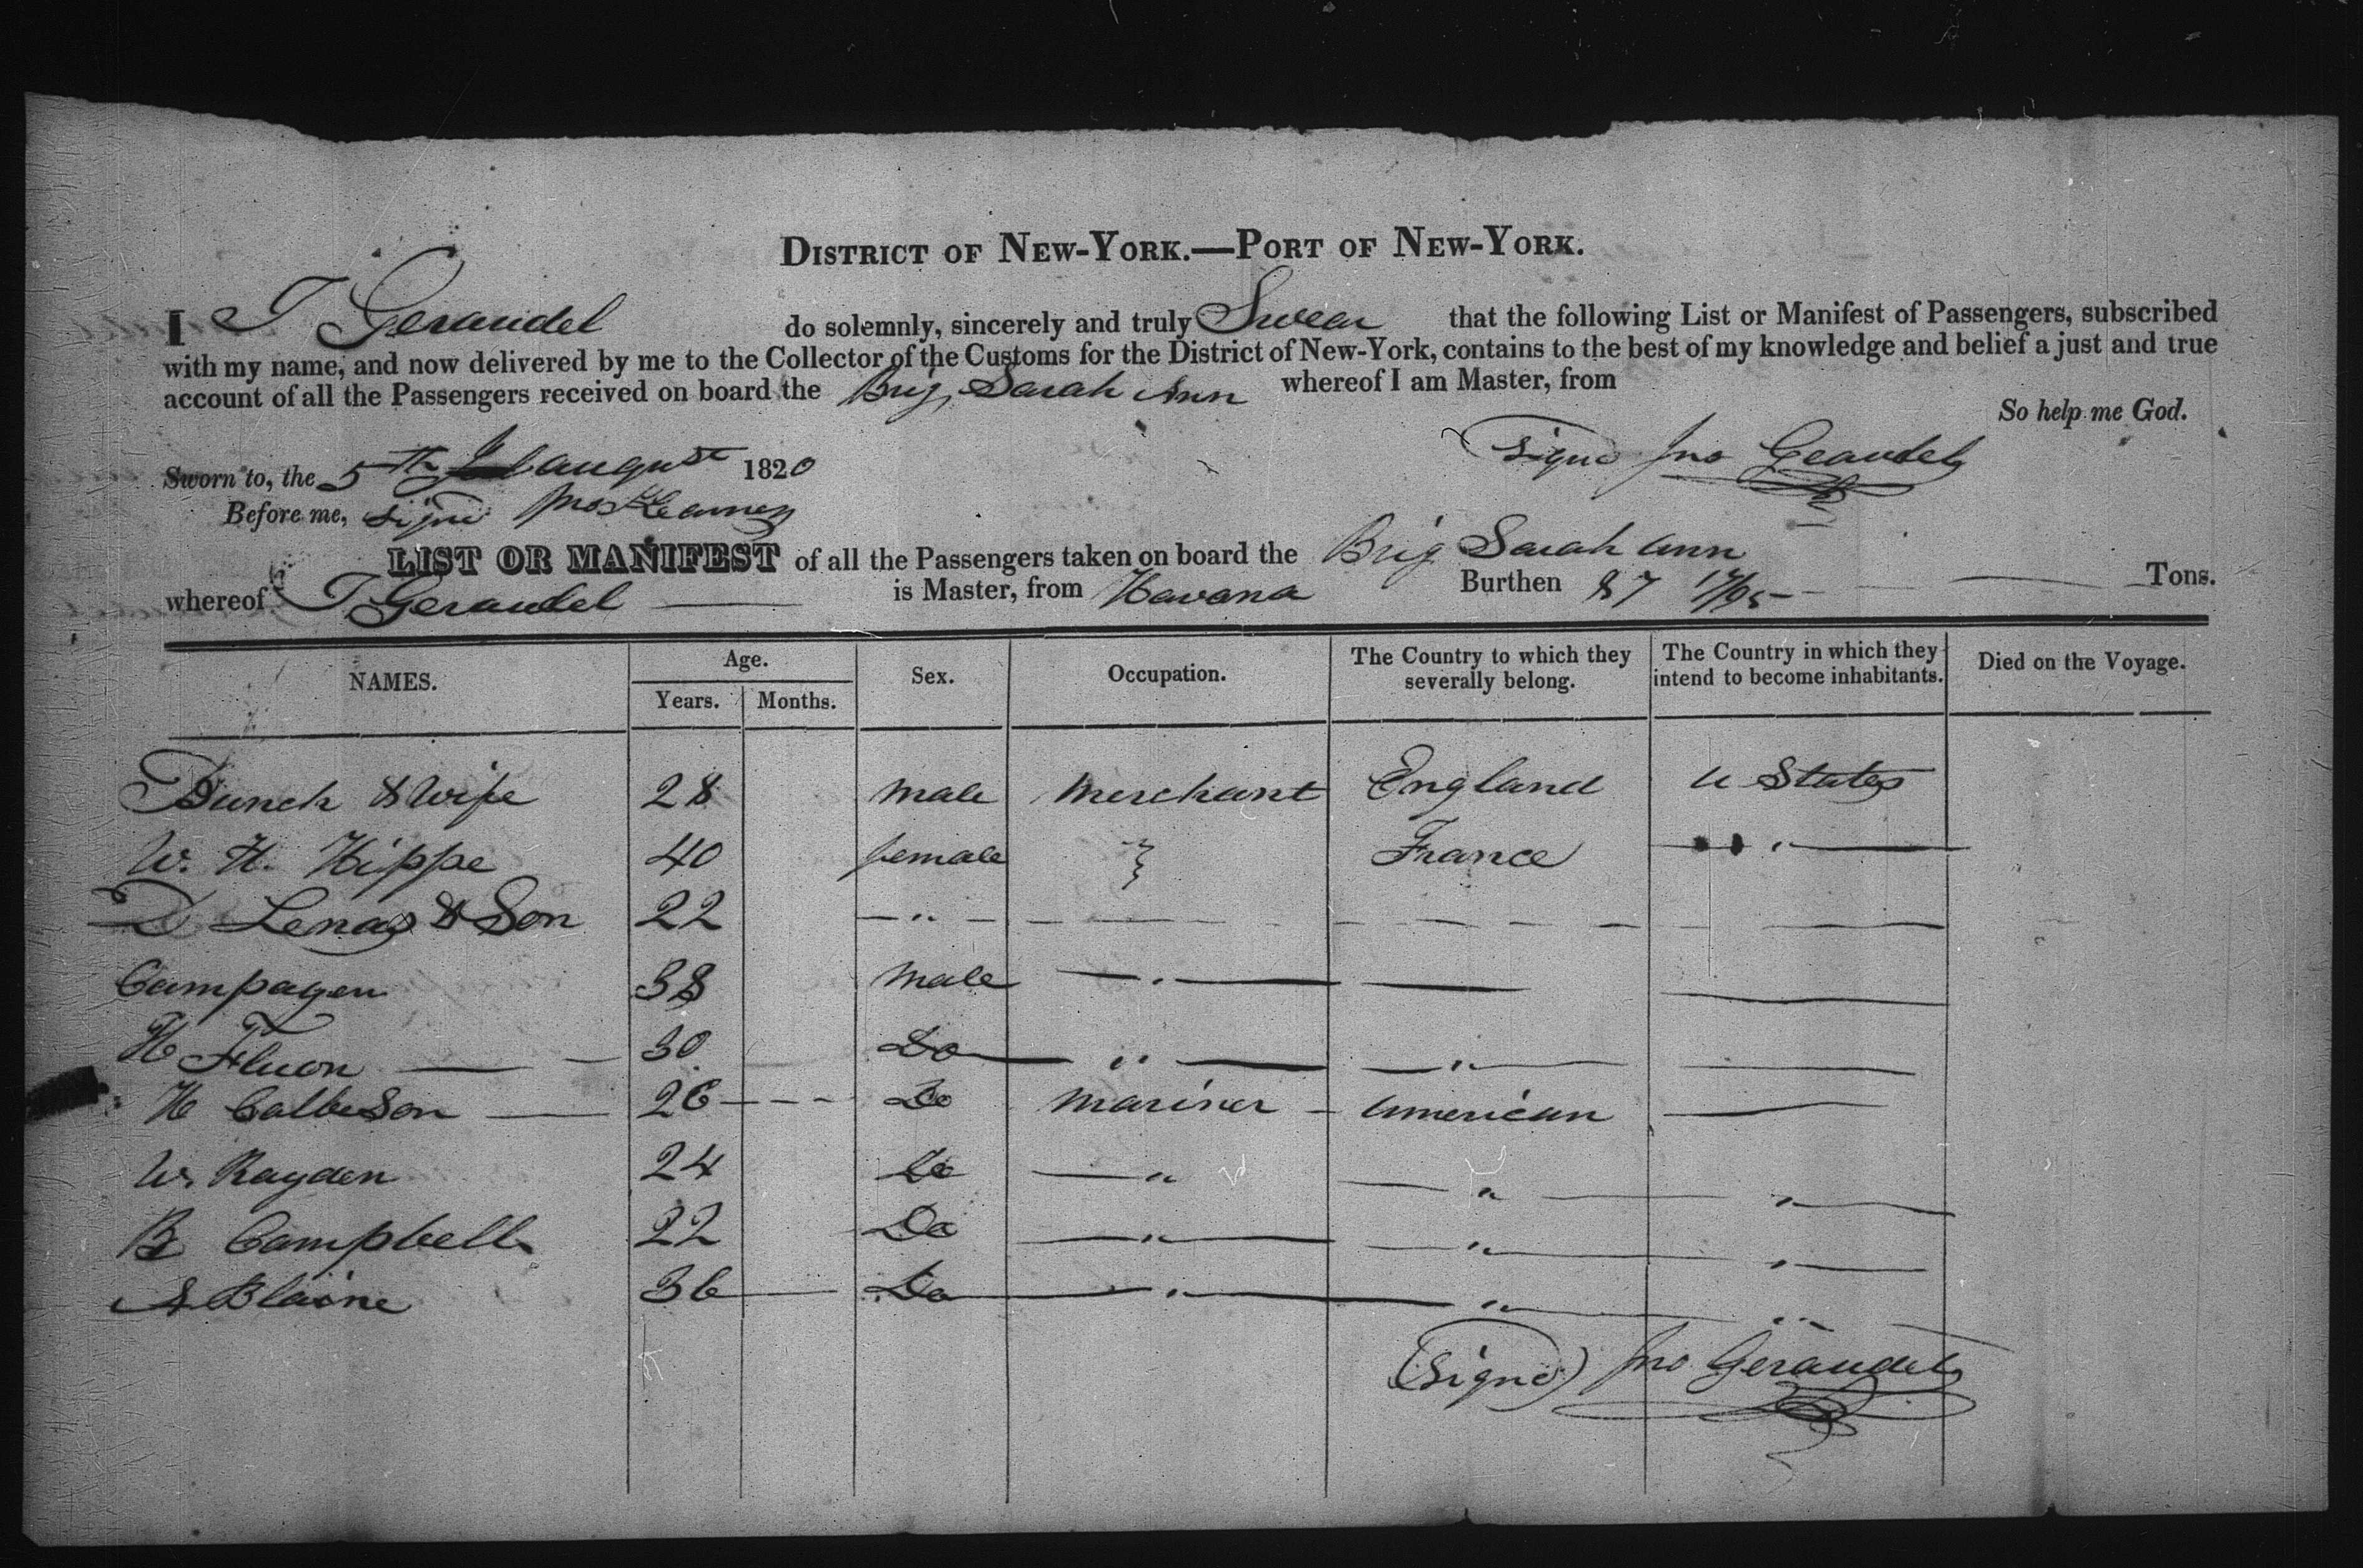 DISTRICT OF NEW-YORK.—PORT OF NEW-YORK.
I J Geraudel do solemnly, sincerely and truly Swear that the following List or Manifest of Passengers, subscribed
with my name, and now delivered by me to the Collector of the Customs for the District of New-York, contains to the best of my knowledge and belief a just and true
account of all the Passengers received on board the Brig Sarah Ann whereof I am Master, from
So help me God.
Signd Jno Geraudel
Sworn to, the 5th august 1820
Before me, Signd
LIST OR MANIFEST of all the Passengers taken on board the Brig Sarah Ann
whereof J Geraudel is Master, from Havana Burthen 87 17/95 Tons.
NAMES. Age. Years. Months. Sex. Occupation. The Country to which they severally belong. The Country in which they intend to become inhabitants. Died on the Voyage.
Bunch & Wife 28 male Merchant England U States
W. H. Hippe 40 female France "
D Lenas & Son 22 "
Campagen 38 male "
H Fluon 30 Do " "
H Calbuson 26 Do Mariner American
W. Rayden 24 Do " " "
B Campbell 22 Do " " "
A Blaine 36 Do " " "
(Signd) Jno Geraudel